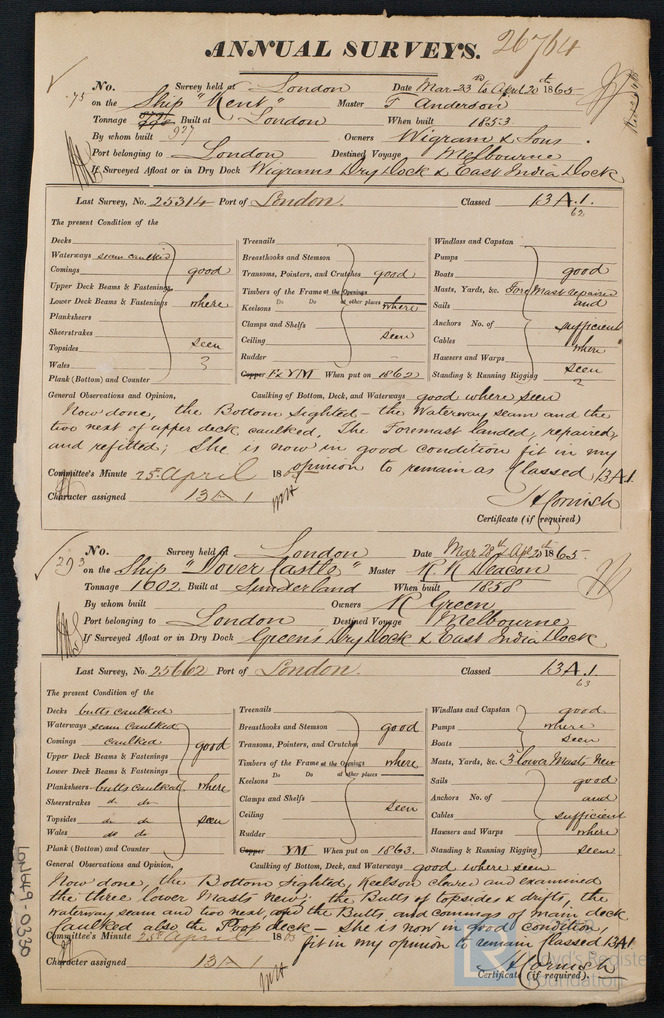 ANNUAL SURVEYS. 26764
No. Survey held at London Date Mar 23rd to April 20th 1865
75 on the Ship "Kent" Master F Anderson
Tonnage 927 Built at London When built 1853
By whom built Owners Wigram & Sons.
Port belonging to London Destined Voyage Melbourne
If Surveyed Afloat or in Dry Dock Wigrams Dry Dock & East India Dock
Last Survey, No. 25314 Port of London. Classed 13 A.1.
62
The present Condition of the
Decks
Waterways seam caulked
Comings good
Upper Deck Beams & Fastenings
Lower Deck Beams & Fastenings where
Planksheers
Sheerstrakes
Topsides seen
Wales
Plank (Bottom) and Counter
Treenails
Breasthooks and Stemson
Transoms, Pointers, and Crutches good
Timbers of the Frame at the Openings
Do Do at other places where
Keelsons
Clamps and Shelfs
Ceiling seen
Rudder
Copper Fx YM When put on 1862
Windlass and Capstan
Pumps
Boats good
Masts, Yards, &c. Fore Mast repaired
Sails and
Anchors No. of sufficient
Cables where
Hawsers and Warps
Standing & Running Rigging seen
General Observations and Opinion, Caulking of Bottom, Deck, and Waterways good where seen
Now done, the Bottom Sighted - the Waterway seam and the
two next of upper deck caulked, The Foremast landed, repaired,
and refitted; She is now in good condition fit in my
opinion to remain as Classed 13 A1.
Committee's Minute 25th April 1865
Character assigned 13 A 1
H Cornish
Certificate (if required)
No. Survey held at London Date Mar 28th & Apl 20th 1865
293 on the Ship "Dover Castle" Master R R Deacon
Tonnage 1002 Built at Sunderland When built 1858
By whom built Owners R Green
Port belonging to London Destined Voyage Melbourne
If Surveyed Afloat or in Dry Dock Green's Dry Dock & East India Dock
Last Survey, No. 25662 Port of London. Classed 13 A.1.
63
The present Condition of the
Decks butts caulked
Waterways seam caulked
Comings caulked good
Upper Deck Beams & Fastenings
Lower Deck Beams & Fastenings
Planksheers butts caulked where
Sheerstrakes do do
Topsides do do seen
Wales do do
Plank (Bottom) and Counter
Treenails
Breasthooks and Stemson good
Transoms, Pointers, and Crutches
Timbers of the Frame at the Openings where
Do Do at other places
Keelsons
Clamps and Shelfs seen
Ceiling
Rudder
Copper YM When put on 1863.
Windlass and Capstan good
Pumps where
Boats seen
Masts, Yards, &c. 3 lower Masts New
Sails good
Anchors No. of and
Cables sufficient
Hawsers and Warps where
Standing & Running Rigging seen
General Observations and Opinion, Caulking of Bottom, Deck, and Waterways good where seen
Now done, the Bottom Sighted, Keelson cleared and examined
the three lower Masts New; the Butts of topsides & drifts, the
waterway seam and two next, and the Butts and comings of main deck
Caulked also the Poop deck - She is now in good condition,
fit in my opinion to remain Classed 13 A1
Committee's Minute 25th April 1865
Character assigned 13 A 1
H Cornish
Certificate (if required).
Lloyd's Register
Foundation